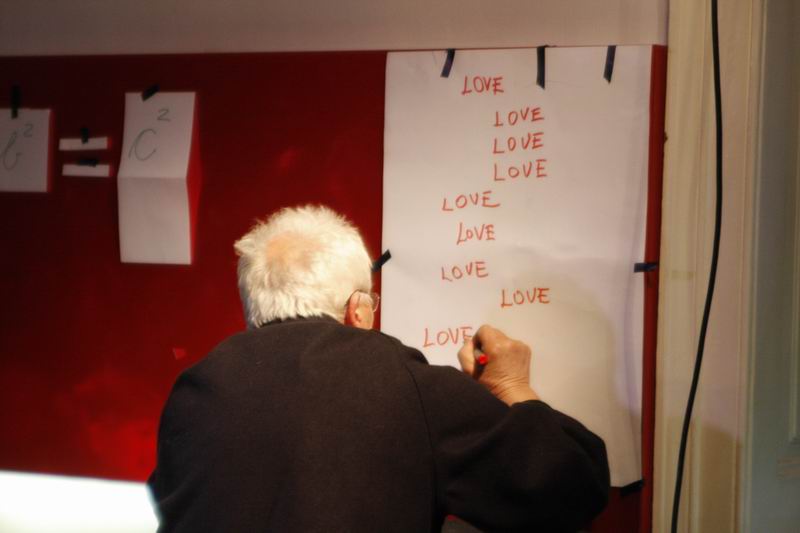 b² = c²
LOVE
LOVE
LOVE
LOVE
LOVE
LOVE
LOVE
LOVE
LOVE